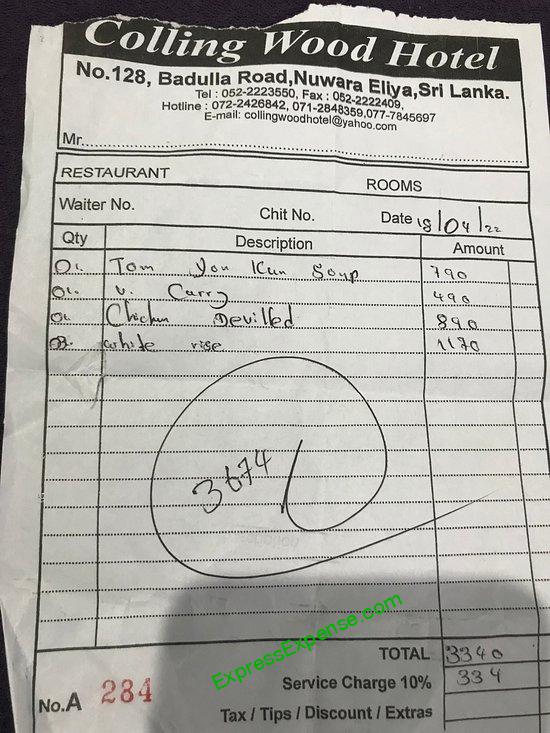 Colling Wood Hotel
No.128, Badulla Road,Nuwara Eliya,Sri Lanka.
Tel : 052-2223550, Fax : 052-2222409,
Hotline : 072-2426842, 071-2848359,077-7845697
E-mail: collingwoodhotel@yahoo.com
Mr.
RESTAURANT ROOMS
Waiter No. Chit No. Date 18/04/22
Qty Description Amount
01. Tom Yon Kun Soup 790
01. V. Curry 490
01. Chicken Devilled 890
03. white rise 1170
3674
ExpressExpense.com
TOTAL 3340
No.A 284 Service Charge 10% 334
Tax / Tips / Discount / Extras